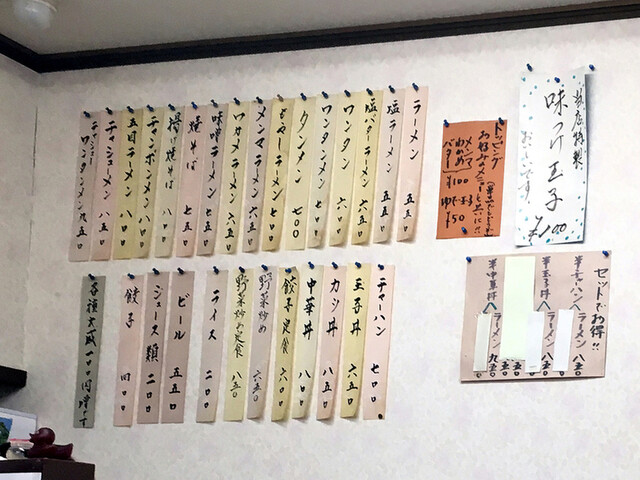 ラーメン 五五〇
塩ラーメン 五五〇
塩バターラーメン 六五〇
ワンタン 六〇〇
ワンタンメン 七〇〇
タンメン 七〇〇
もやしラーメン 六五〇
メンマラーメン 六五〇
ワカメラーメン 六五〇
味噌ラーメン 七五〇
焼そば 七五〇
揚げ焼そば 八〇〇
チャンポンメン 八〇〇
五目ラーメン 八〇〇
チャーシューメン 八五〇
チャーシューワンタンメン 九五〇
チャーハン 七〇〇
玉子丼 六五〇
カツ丼 八五〇
中華丼 八〇〇
餃子定食 六八〇
野菜炒め 六五〇
野菜炒め定食 八五〇
ライス 二〇〇
ビール 五五〇
ジュース類 二〇〇
餃子 四〇〇
各種大盛一〇〇円増し
トッピング
お好みのメニューと一緒に!!
メンマ
わかめ
バター
¥100
ゆで玉子
¥50
当店特製
味つけ玉子
おいしいです。
¥100
セットでお得!!
半チャーハン
ラーメン 八五〇
半玉子丼
ラーメン 八五〇
半中華丼
ラーメン 九五〇